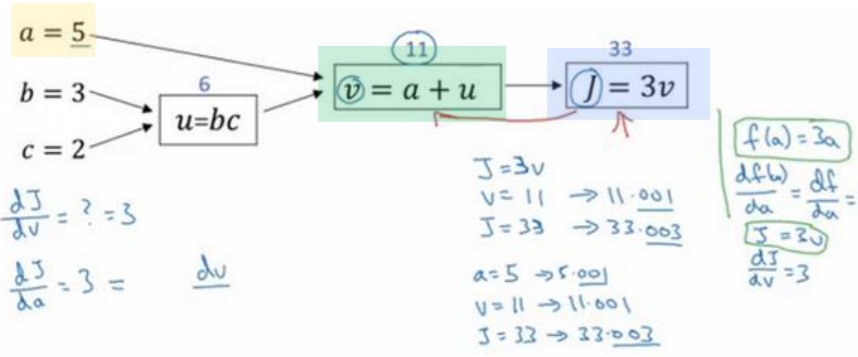 a = 5
11
33
b = 3
6
v = a + u
J = 3v
u=bc
c = 2
dJ/dv = ? = 3
dJ/da = 3 = dv
J = 3v
v = 11 → 11.001
J = 33 → 33.003
a = 5 → 5.001
v = 11 → 11.001
J = 33 → 33.003
f(a) = 3a
df(a)/da = df/da =
J = 3v
dJ/dv = 3